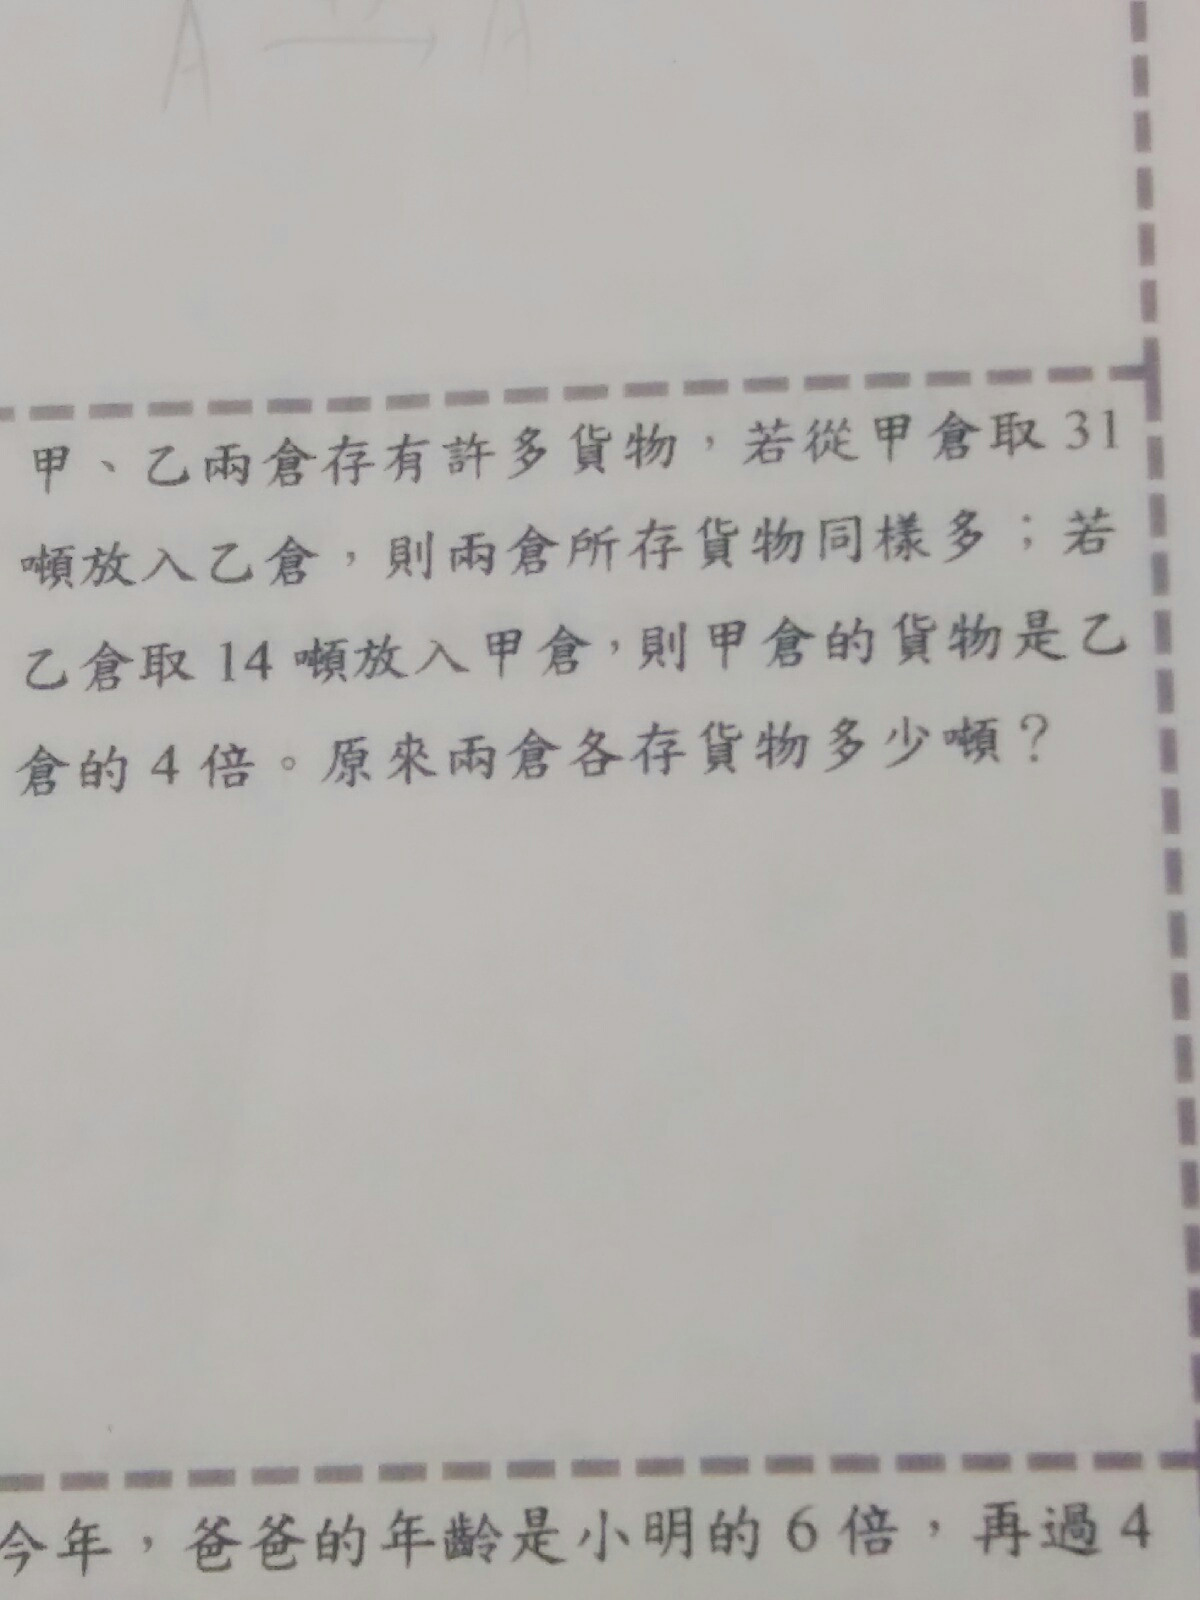 A → A
甲、乙兩倉存有許多貨物，若從甲倉取 31
噸放入乙倉，則兩倉所存貨物同樣多；若
乙倉取 14 噸放入甲倉，則甲倉的貨物是乙
倉的 4 倍。原來兩倉各存貨物多少噸？
今年，爸爸的年齡是小明的 6 倍，再過 4